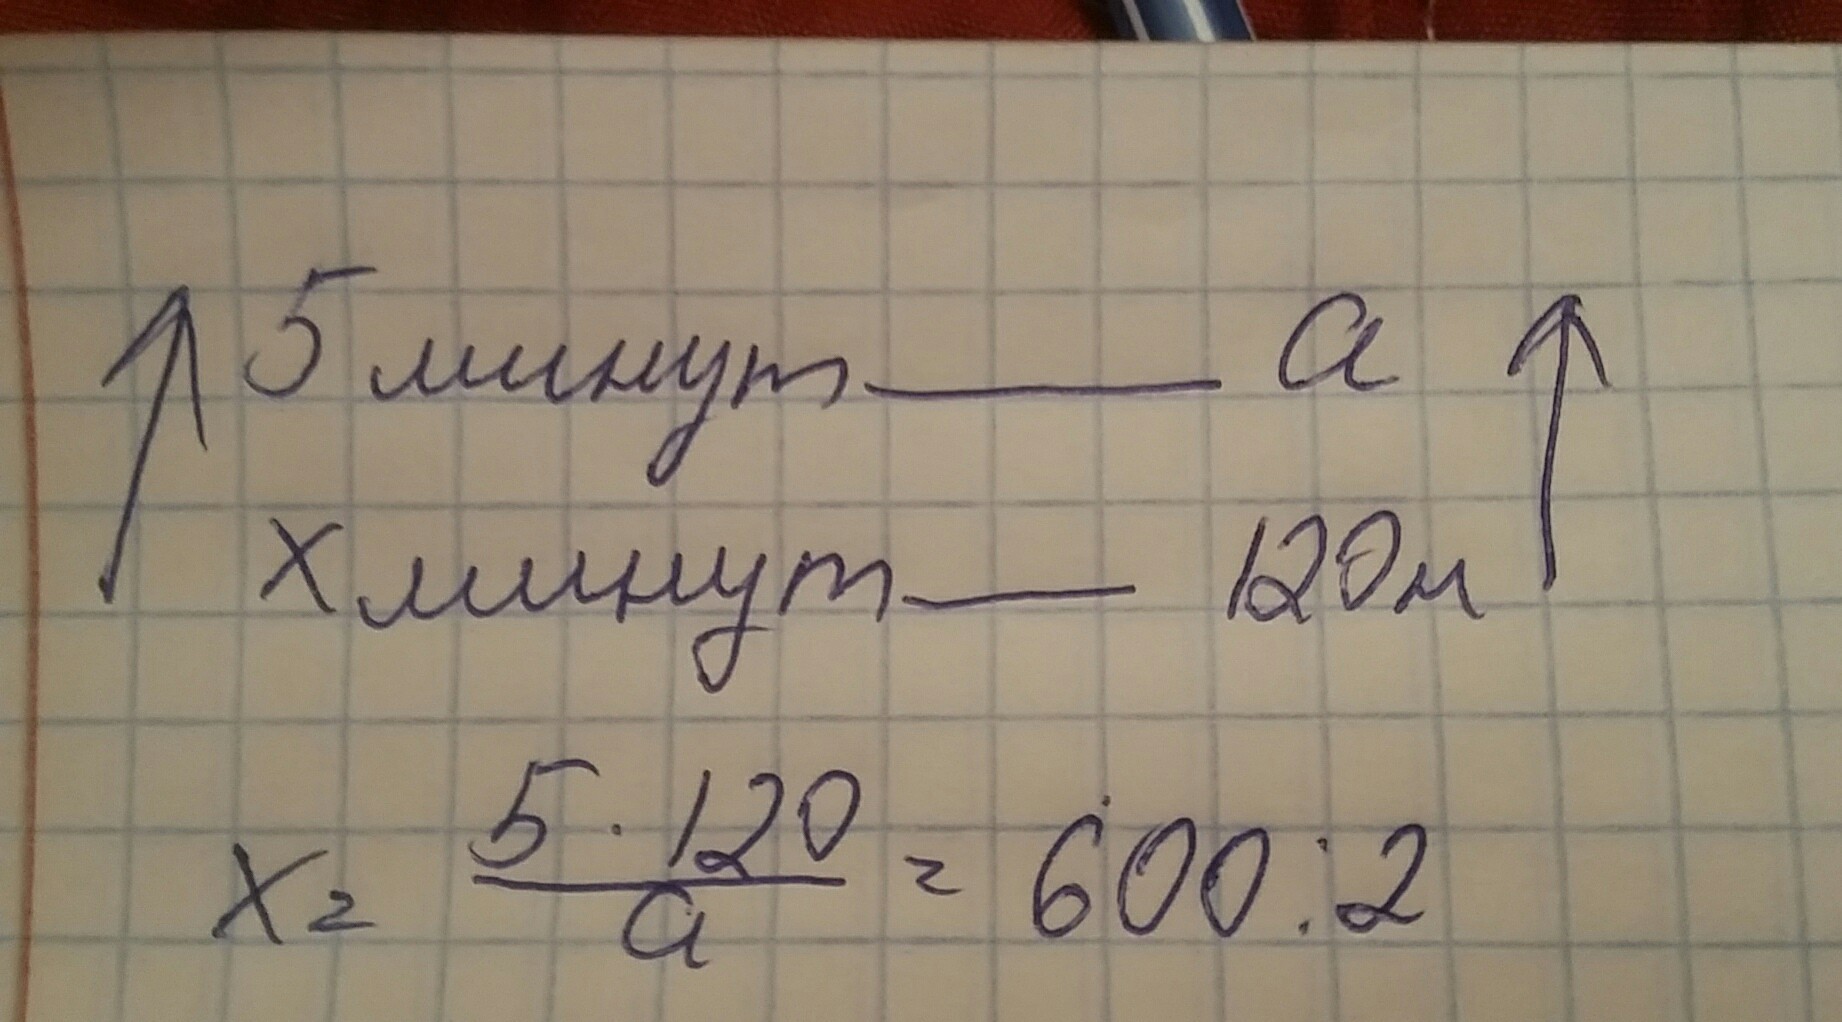 5 минут — a
х минут — 120м
х = 5 · 120 / a = 600 : 2